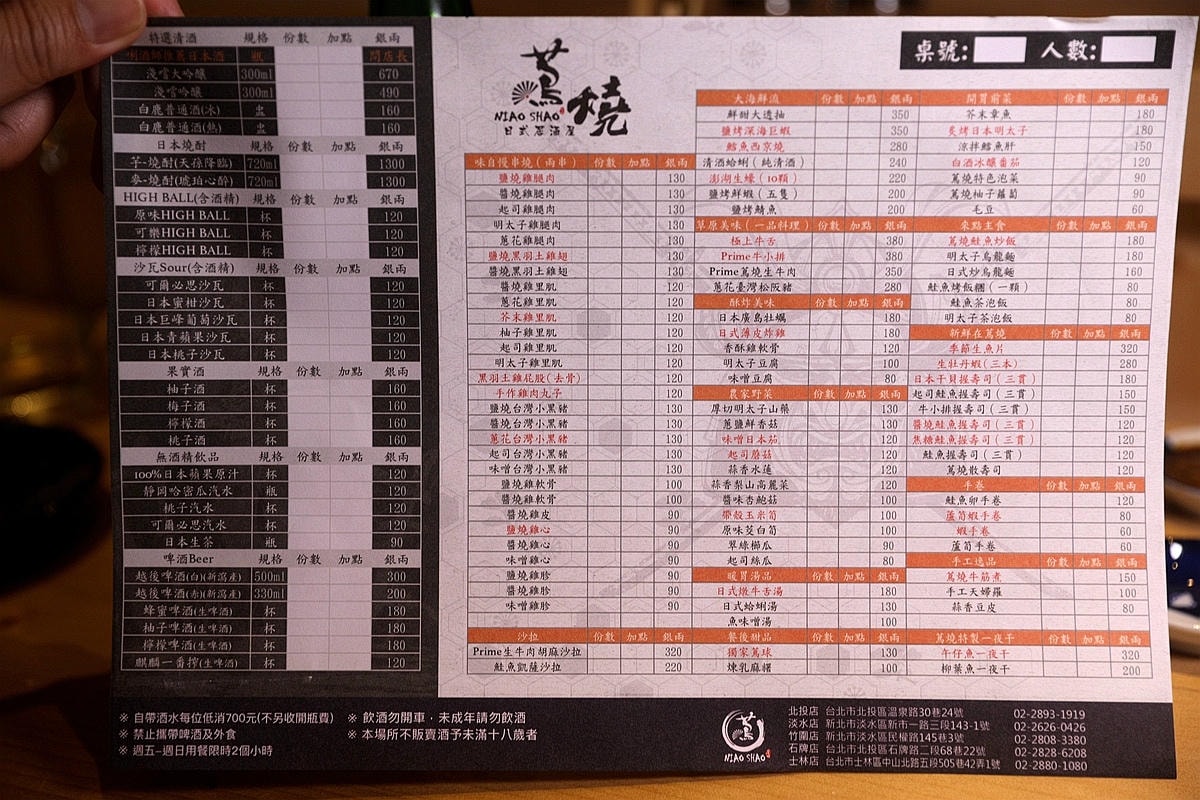 特選清酒 規格 份數 加點 銀兩
唎酒師推薦日本酒 瓶 問店長
淺嚐大吟釀 300ml 670
淺嚐吟釀 300ml 490
白鹿普通酒(冰) 盅 160
白鹿普通酒(熱) 盅 160
日本燒酎 規格 份數 加點 銀兩
芋-燒酎(天孫降臨) 720ml 1300
麥-燒酎(琥珀心醉) 720ml 1300
HIGH BALL(含酒精) 規格 份數 加點 銀兩
原味HIGH BALL 杯 120
可樂HIGH BALL 杯 120
檸檬HIGH BALL 杯 120
沙瓦Sour(含酒精) 規格 份數 加點 銀兩
可爾必思沙瓦 杯 120
日本蜜柑沙瓦 杯 120
日本巨峰葡萄沙瓦 杯 120
日本青蘋果沙瓦 杯 120
日本桃子沙瓦 杯 120
果實酒 規格 份數 加點 銀兩
柚子酒 杯 160
梅子酒 杯 160
檸檬酒 杯 160
桃子酒 杯 160
無酒精飲品 規格 份數 加點 銀兩
100%日本蘋果原汁 杯 120
靜岡哈密瓜汽水 瓶 120
桃子汽水 杯 120
可爾必思汽水 杯 120
日本生茶 瓶 90
啤酒Beer 規格 份數 加點 銀兩
越後啤酒(白)(新瀉產) 500ml 300
越後啤酒(赤)(新瀉產) 330ml 200
蜂蜜啤酒(生啤酒) 杯 180
柚子啤酒(生啤酒) 杯 180
檸檬啤酒(生啤酒) 杯 180
麒麟一番搾(生啤酒) 杯 120
蔦燒
NIAO SHAO
日式居酒屋
桌號: 人數:
味自慢串燒（兩串） 份數 加點 銀兩
鹽燒雞腿肉 130
醬燒雞腿肉 130
起司雞腿肉 130
明太子雞腿肉 130
蔥花雞腿肉 130
鹽燒黑羽土雞翅 130
醬燒黑羽土雞翅 130
醬燒雞里肌 120
蔥花雞里肌 120
芥末雞里肌 120
柚子雞里肌 120
起司雞里肌 120
明太子雞里肌 120
黑羽土雞花股(去骨) 120
手作雞肉丸子 120
鹽燒台灣小黑豬 130
醬燒台灣小黑豬 130
蔥花台灣小黑豬 130
起司台灣小黑豬 130
味噌台灣小黑豬 130
鹽燒雞軟骨 100
醬燒雞軟骨 100
醬燒雞皮 90
鹽燒雞心 90
醬燒雞心 90
味噌雞心 90
鹽燒雞胗 90
醬燒雞胗 90
味噌雞胗 90
沙拉 份數 加點 銀兩
Prime生牛肉胡麻沙拉 320
鮭魚凱薩沙拉 220
大海鮮流 份數 加點 銀兩
鮮甜大透抽 350
鹽烤深海巨蝦 350
鱈魚西京燒 280
清酒蛤蜊（純清酒） 240
澎湖生蠔（10顆） 220
鹽烤鮮蝦（五隻） 200
鹽烤鯖魚 200
草原美味（一品料理） 份數 加點 銀兩
極上牛舌 380
Prime牛小排 380
Prime蔦燒生牛肉 350
蔥花臺灣松阪豬 280
酥炸美味 份數 加點 銀兩
日本廣島牡蠣 180
日式薄皮炸雞 180
香酥雞軟骨 120
明太子豆腐 100
味噌豆腐 80
農家野菜 份數 加點 銀兩
厚切明太子山藥 130
蔥鹽鮮香菇 130
味噌日本茄 120
起司蘑菇 120
蒜香水蓮 120
蒜香梨山高麗菜 120
醬味杏鮑菇 100
帶殼玉米筍 100
原味茭白筍 100
翠綠櫛瓜 90
起司絲瓜 80
暖胃湯品 份數 加點 銀兩
日式燉牛舌湯 180
日式蛤蜊湯 130
魚味噌湯 100
餐後甜品 份數 加點 銀兩
獨家蔦球 130
煉乳麻糬 100
開胃前菜 份數 加點 銀兩
芥末章魚 180
炙烤日本明太子 180
涼拌鱈魚肝 150
白酒冰釀番茄 120
蔦燒特色泡菜 90
蔦燒柚子蘿蔔 90
毛豆 60
來點主食 份數 加點 銀兩
蔦燒鮭魚炒飯 180
明太子烏龍麵 180
日式炒烏龍麵 160
鮭魚烤飯糰（一顆） 80
鮭魚茶泡飯 80
明太子茶泡飯 80
新鮮在蔦燒 份數 加點 銀兩
季節生魚片 320
生牡丹蝦（三本） 280
日本干貝握壽司（三貫） 180
起司鮭魚握壽司（三貫） 150
牛小排握壽司（三貫） 150
醬燒鮭魚握壽司（三貫） 120
焦糖鮭魚握壽司（三貫） 120
鮭魚握壽司（三貫） 120
蔦燒散壽司 120
手卷 份數 加點 銀兩
鮭魚卵手卷 120
蘆筍蝦手卷 80
蝦手卷 60
蘆筍手卷 60
手工逸品 份數 加點 銀兩
蔦燒牛筋煮 150
手工天婦羅 100
蒜香豆皮 80
蔦燒特製一夜干 份數 加點 銀兩
午仔魚一夜干 320
柳葉魚一夜干 200
※ 自帶酒水每位低消700元(不另收開瓶費)
※ 禁止攜帶啤酒及外食
※ 週五–週日用餐限時2個小時
※ 飲酒勿開車，未成年請勿飲酒
※ 本場所不販賣酒予未滿十八歲者
蔦
NIAO SHAO
北投店 台北市北投區溫泉路30巷24號 02-2893-1919
淡水店 新北市淡水區新市一路三段143-1號 02-2626-0426
竹圍店 新北市淡水區民權路145巷3號 02-2808-3380
石牌店 台北市北投區石牌路二段68巷22號 02-2828-6208
士林店 台北市士林區中山北路五段505巷42弄1號 02-2880-1080